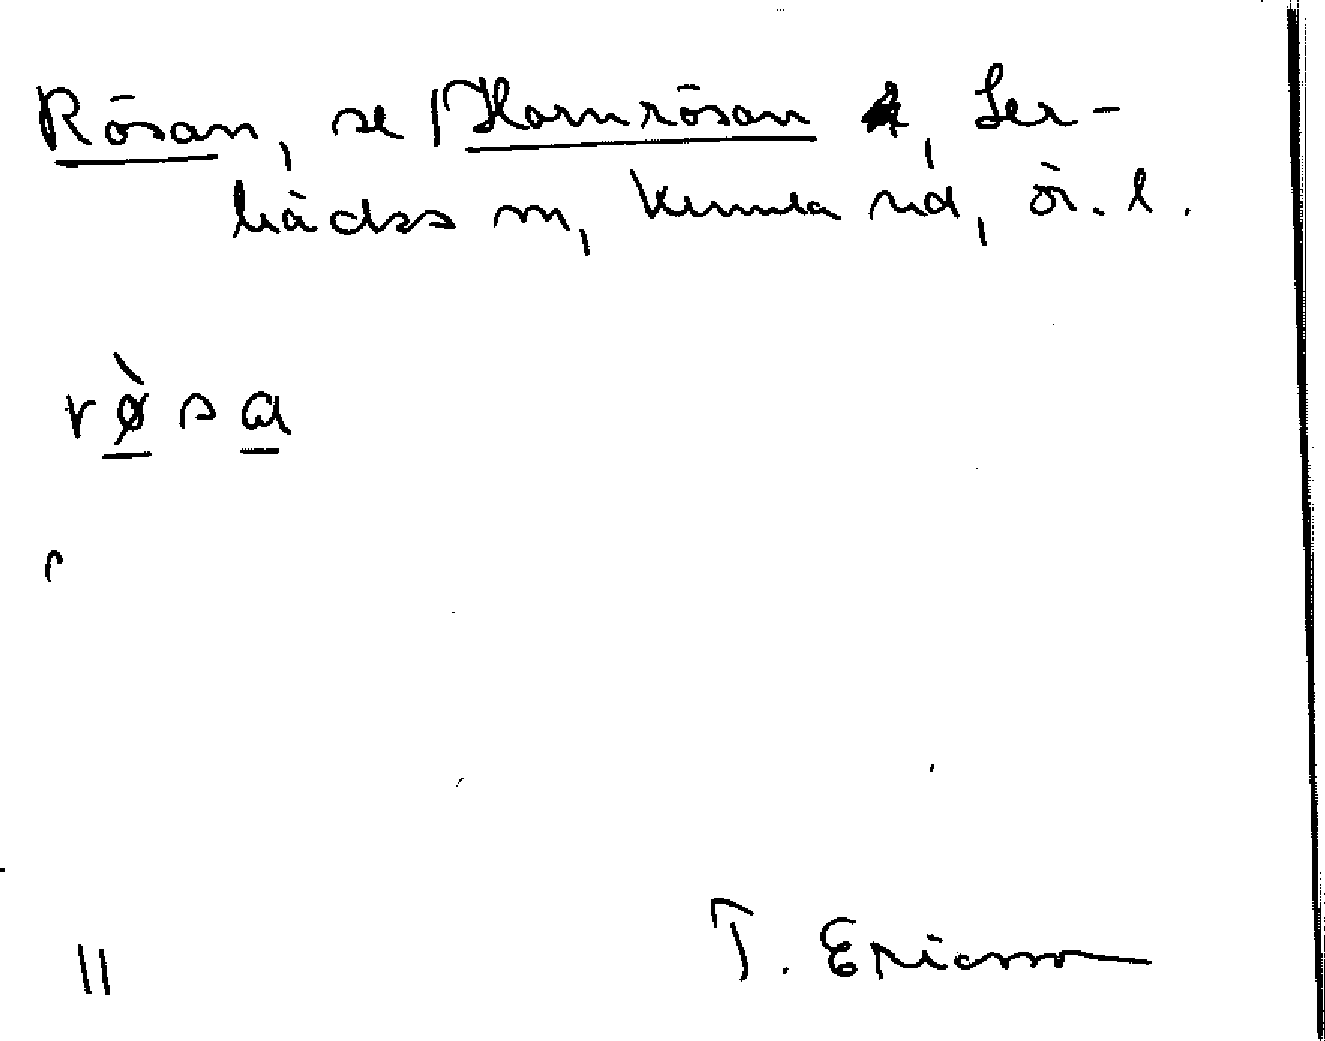 Rösan, se Hornrösan, Ler-
bäcks sn, Kumla hd, Ör. l.
rø̀sɑ
T. Ericsson